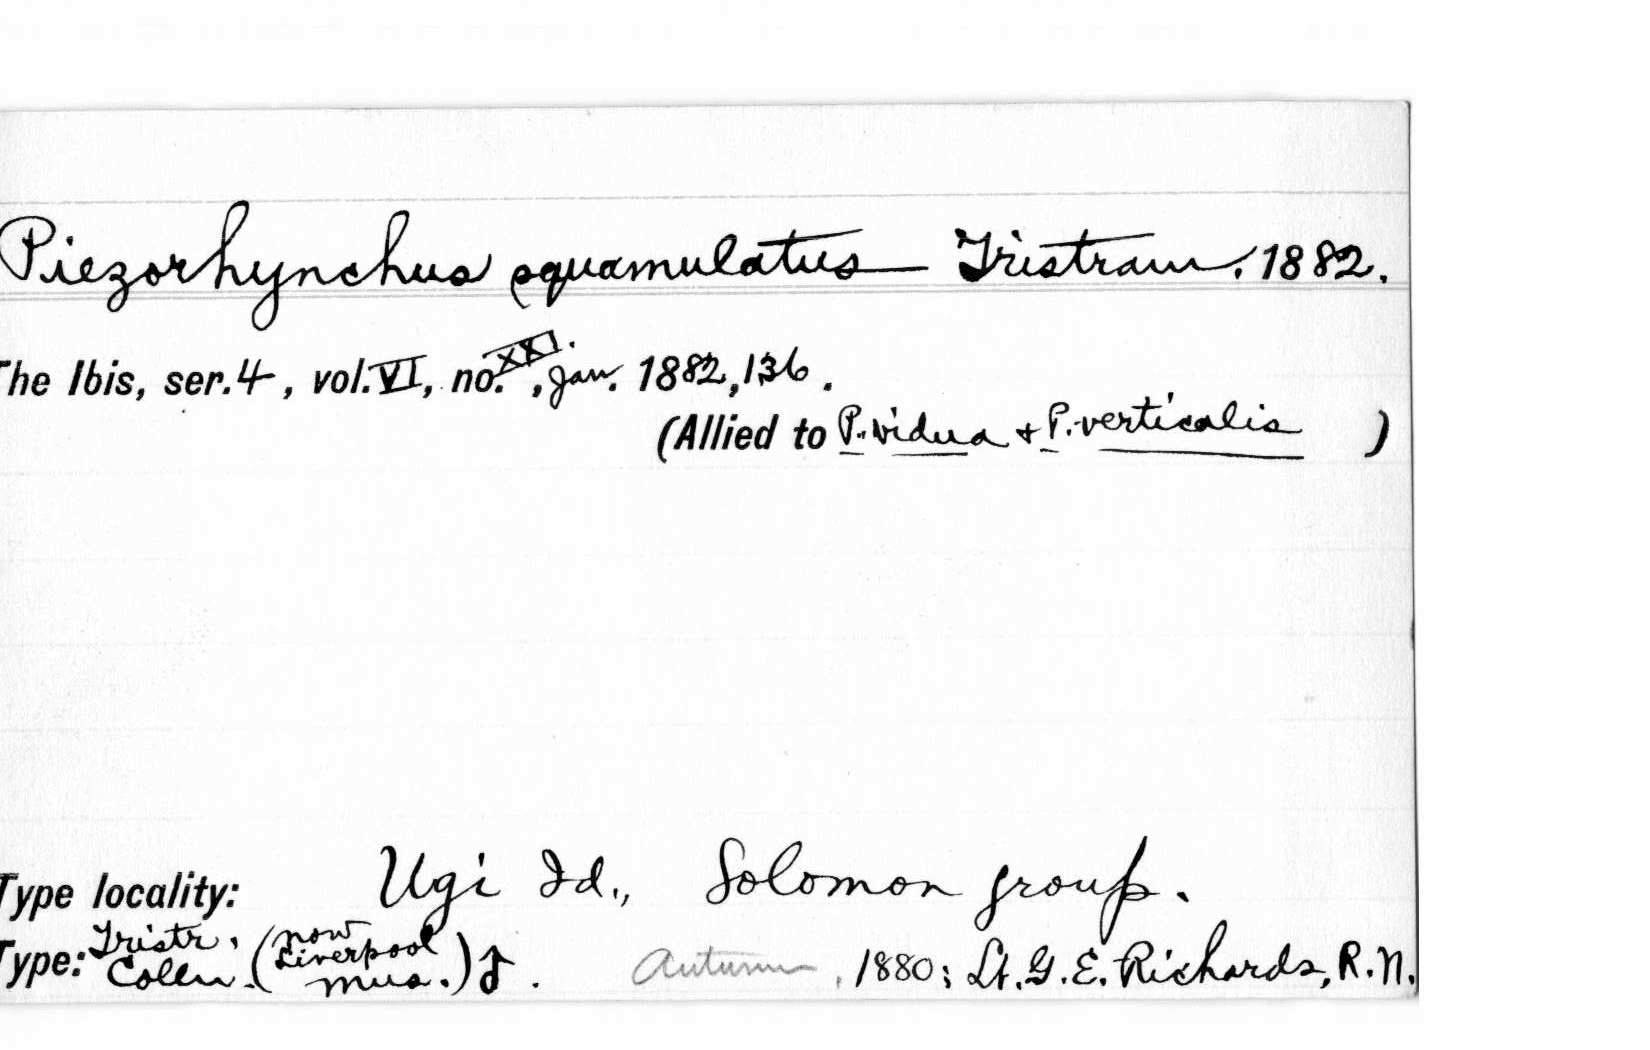 Piezorhynchus squamulatus Tristram. 1882.
The Ibis, ser. 4, vol. VI, no. XXI., Jan. 1882, 136.
(Allied to P. vidua + P. verticalis )
Type locality: Ugi Id., Solomon group.
Type: Tristr. Colln. (now Liverpool Mus.) ♂. Autumn, 1880; Lt. G. E. Richards, R.N.